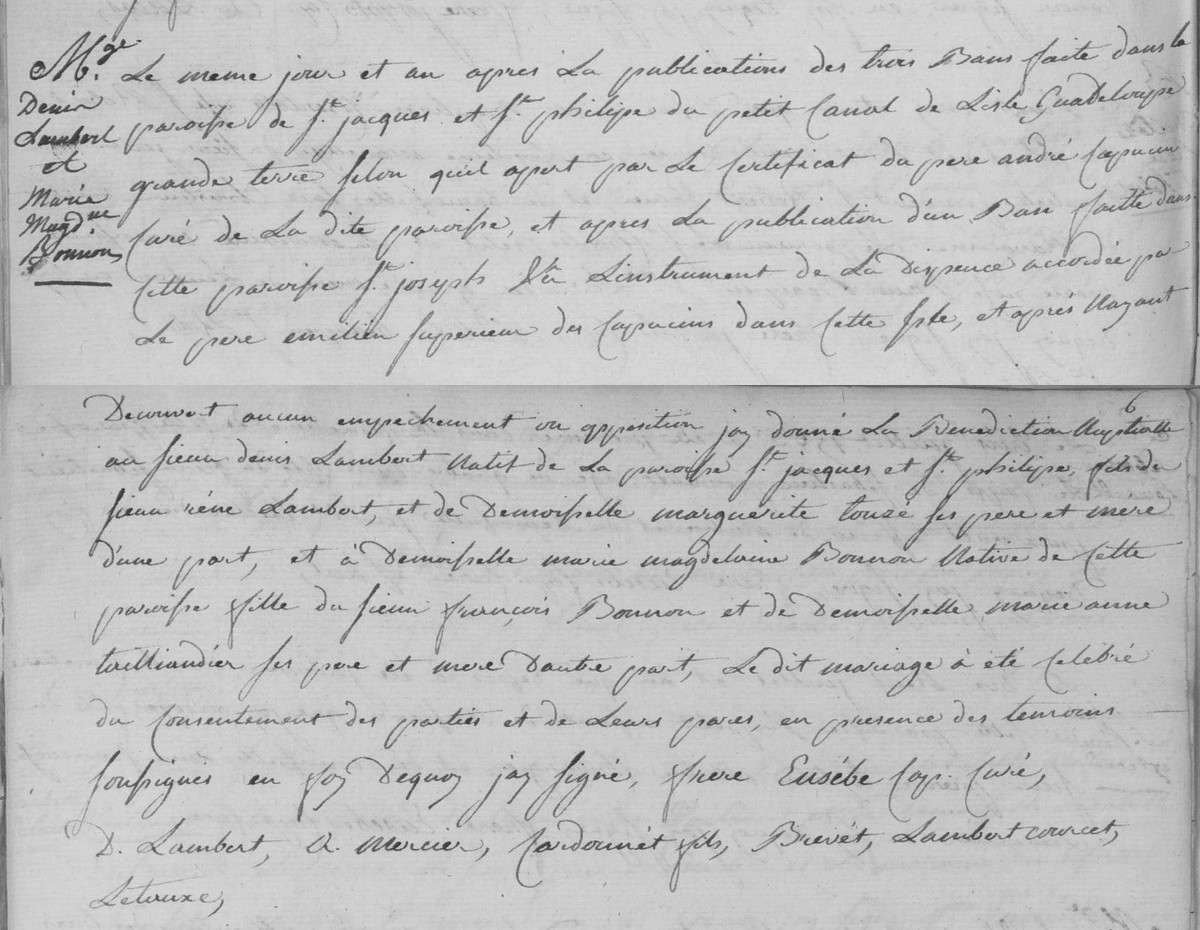 M.ge
Denis
Lambert
et
Marie
Magd.ne
Bonnon
Le meme jour et an apres La publications des trois Bans faite dans la
paroisse de St. jacques et St. philipe du petit Canal de Lisle Guadeloupe
grande terre selon quil apert par Le Certificat du pere andré Capucin
Curé de La dite paroisse, et apres La publication d'un Ban faitte dans
Cette paroisse St. joseph Vû Linstrument de La Dispence accordée pa
Le pere emilien superieur des Capucins dans Cette Isle, et aprés Nayant
6
Decouvert aucun empechement ou opposition jay donné La Benediction Nuptialle
au sieur denis Lambert Natif de La paroisse St. jacques et St. philipe, fils du
sieur réne Lambert, et de Demoisselle marguerite touzé ses pere et mere
d'une part, et à Demoisselle marie magdelaine Bonnon Native de Cette
paroisse fille du sieur françois Bonnon et de Demoisselle marie anne
tailliandier ses pere et mere Dautre part, Le dit mariage à été Celebré
du Consentement des parties et de Leurs pares, en presence des temoins
soussignés en foy Dequoy jay signé, frere Eusébe Cap. Curé,
D. Lambert, A. Mercier, Cardonnét fils, Brevét, Lambert courcet,
Letouxe,